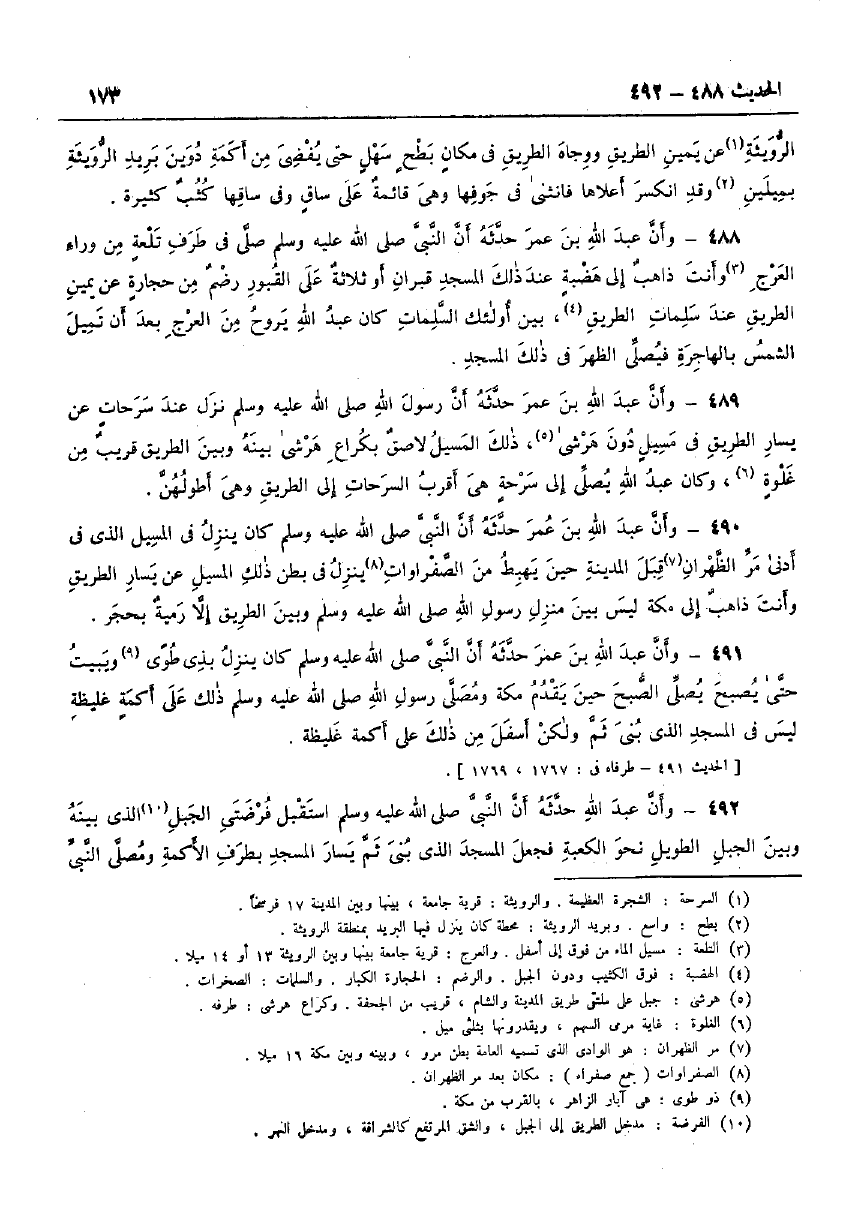 الحديث ٤٨٨ – ٤٩٢
١٧٣
الرُّوَيثَةِ (١) عن يَمينِ الطريقِ ووِجاهَ الطريقِ فى مكانٍ بَطْحٍ سَهْلٍ حتى يُفْضِىَ مِن أكَمَةِ دُوَينَ بَرِيدِ الرُّوَيثَةِ
بِمِيلَينِ (٢) وقدِ انكسرَ أعلاها فانثنىٰ فى جَوفِها وهىَ قائمةٌ عَلَى ساقٍ وفى ساقِها كُثُبٌ كثيرة .
٤٨٨ – وأنَّ عبدَ اللهِ بنَ عمرَ حدَّثَهُ أنَّ النَّبىَّ صلى الله عليه وسلم صلَّى فى طَرَفِ تَلْعةٍ مِن وراءِ
العَرْجِ (٣) وأنتَ ذاهبٌ إلى هَضْبةٍ عندَ ذٰلكَ المسجدِ قبرانِ أو ثلاثةٌ عَلَى القُبورِ رضْمٌ مِن حجارةٍ عن يمينِ
الطريقِ عندَ سَلِماتِ الطريقِ (٤) ، بين أولٰئك السَّلِماتِ كان عبدُ اللهِ يَروحُ مِنَ العرْجِ بعدَ أن تَمِيلَ
الشمسُ بالهاجِرَةِ فيُصلِّى الظهرَ فى ذٰلكَ المسجدِ .
٤٨٩ – وأنَّ عبدَ اللهِ بنَ عمرَ حدَّثَهُ أنَّ رسولَ اللهِ صلى الله عليه وسلم نزَل عندَ سَرَحاتٍ عن
يسارِ الطريقِ فى مَسِيلٍ دُونَ هَرْشىٰ (٥) ، ذٰلكَ المَسيلُ لاصقٌ بكُراعِ هَرْشىٰ بينَهُ وبينَ الطريق قريبٌ مِن
غَلْوةٍ (٦) ، وكان عبدُ اللهِ يُصلِّى إلى سَرْحةٍ هىَ أقربُ السرَحاتِ إلى الطريقِ وهىَ أطولُهُنَّ .
٤٩٠ – وأنَّ عبدَ اللهِ بنَ عُمرَ حدَّثَهُ أنَّ النَّبىَّ صلى الله عليه وسلم كان ينزِلُ فى المسِيل الذى فى
أدنىٰ مَرِّ الظَّهْرانِ (٧) قِبَلَ المدينةِ حينَ يَهبِطُ منَ الصَّفْراواتِ (٨) ينزِلُ فى بطن ذلكِ المسيلِ عن يَسارِ الطريقِ
وأنتَ ذاهبٌ إلى مكة ليسَ بينَ منزلِ رسولِ اللهِ صلى الله عليه وسلم وبينَ الطريق إلَّا رَميةٌ بحجَر .
٤٩١ – وأنَّ عبدَ اللهِ بنَ عمرَ حدَّثَهُ أنَّ النَّبىَّ صلى الله عليه وسلم كان ينزِلُ بذِى طُوًى (٩) ويَبيتُ
حتَّىٰ يُصبحَ يُصلِّى الصُّبحَ حينَ يَقْدُمُ مكة ومُصَلَّى رسولِ اللهِ صلى الله عليه وسلم ذلك عَلَى أكمَةٍ غليظةٍ
ليسَ فى المسجدِ الذى بُنىَ ثَمَّ ولٰكنْ أسفَلَ مِن ذٰلكَ على أكمة غَليظة .
[ الحديث ٤٩١ – طرفاه فى : ١٧٦٧ ، ١٧٦٩ ] .
٤٩٢ – وأنَّ عبدَ اللهِ حدَّثَهُ أنَّ النَّبىَّ صلى الله عليه وسلم استَقْبل فُرْضَتَىِ الجَبلِ (١٠) الذى بينَهُ
وبينَ الجبلِ الطويلِ نحوَ الكعبةِ فجعلَ المسجدَ الذى بُنىَ ثَمَّ يَسارَ المسجدِ بطرَفِ الأكمةِ ومُصلَّى النَّبىِّ
(١) السرحة : الشجرة العظيمة . والرويثة : قرية جامعة ، بينها وبين المدينة ١٧ فرسخاً .
(٢) بطح : واسع . وبريد الرويثة : محطة كان ينزل فيها البريد بمنطقة الرويثة .
(٣) التلعة : مسيل الماء من فوق إلى أسفل . والعرج : قرية جامعة بينها وبين الرويثة ١٣ أو ١٤ ميلا .
(٤) الهضبة : فوق الكثيب ودون الجبل . والرضم : الحجارة الكبار . والسلمات : الصخرات .
(٥) هرشى : جبل على ملتقى طريق المدينة والشام ، قريب من الجحفة . وكراع هرشى : طرفه .
(٦) الغلوة : غاية مرمى السهم ، ويقدرونها بثلثى ميل .
(٧) مر الظهران : هو الوادى الذى تسميه العامة بطن مرو ، وبينه وبين مكة ١٦ ميلا .
(٨) الصفراوات ( جمع صفراء ) : مكان بعد مر الظهران .
(٩) ذو طوى : هى آبار الزاهر ، بالقرب من مكة .
(١٠) الفرضة : مدخل الطريق إلى الجبل ، والشق المرتفع كالشراقة ، ومدخل النهر .